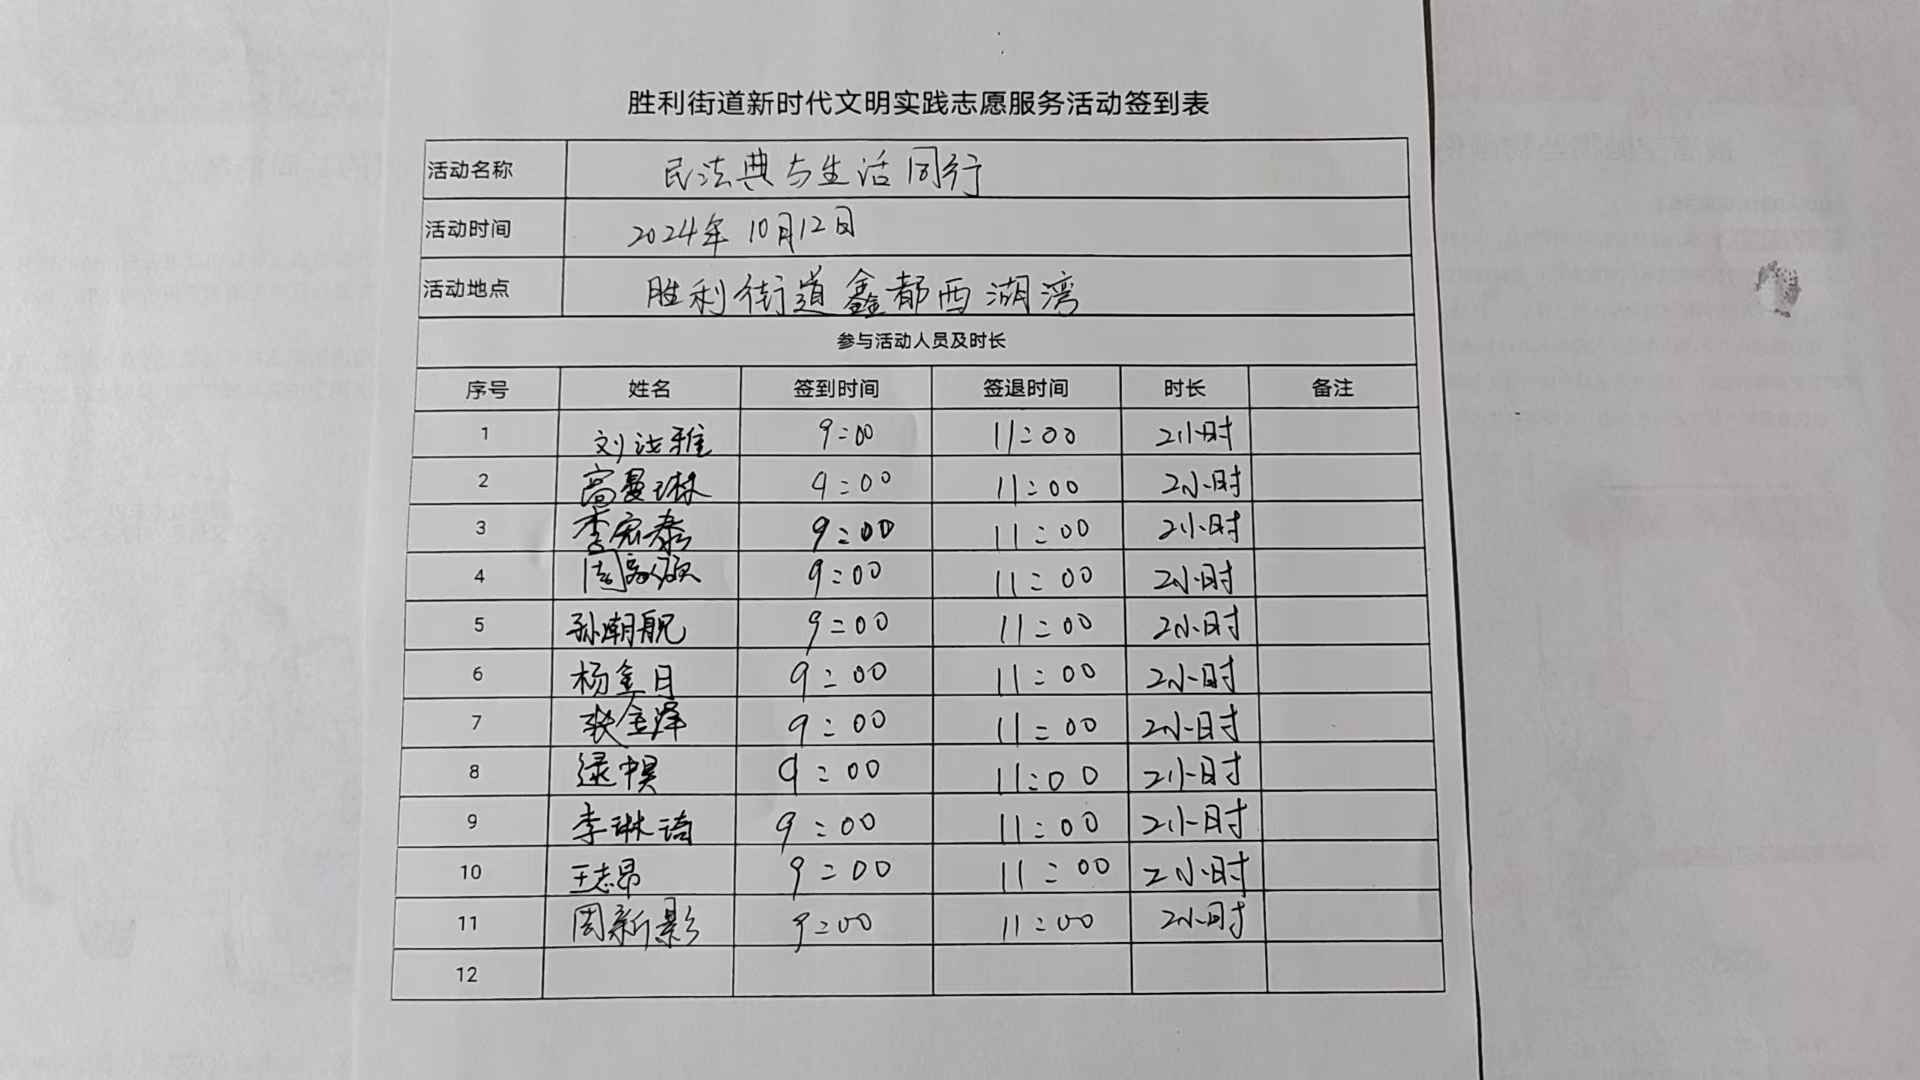 胜利街道新时代文明实践志愿服务活动签到表
活动名称 民法典与生活同行
活动时间 2024年10月12日
活动地点 胜利街道鑫都西湖湾
参与活动人员及时长
序号 姓名 签到时间 签退时间 时长 备注
1 刘法雅 9:00 11:00 2小时
2 高曼琳 9:00 11:00 2小时
3 李宏泰 9:00 11:00 2小时
4 周 9:00 11:00 2小时
5 孙朝舰 9:00 11:00 2小时
6 杨金日 9:00 11:00 2小时
7 张金泽 9:00 11:00 2小时
8 9:00 11:00 2小时
9 李琳琦 9:00 11:00 2小时
10 王志昂 9:00 11:00 2小时
11 周新影 9:00 11:00 2小时
12